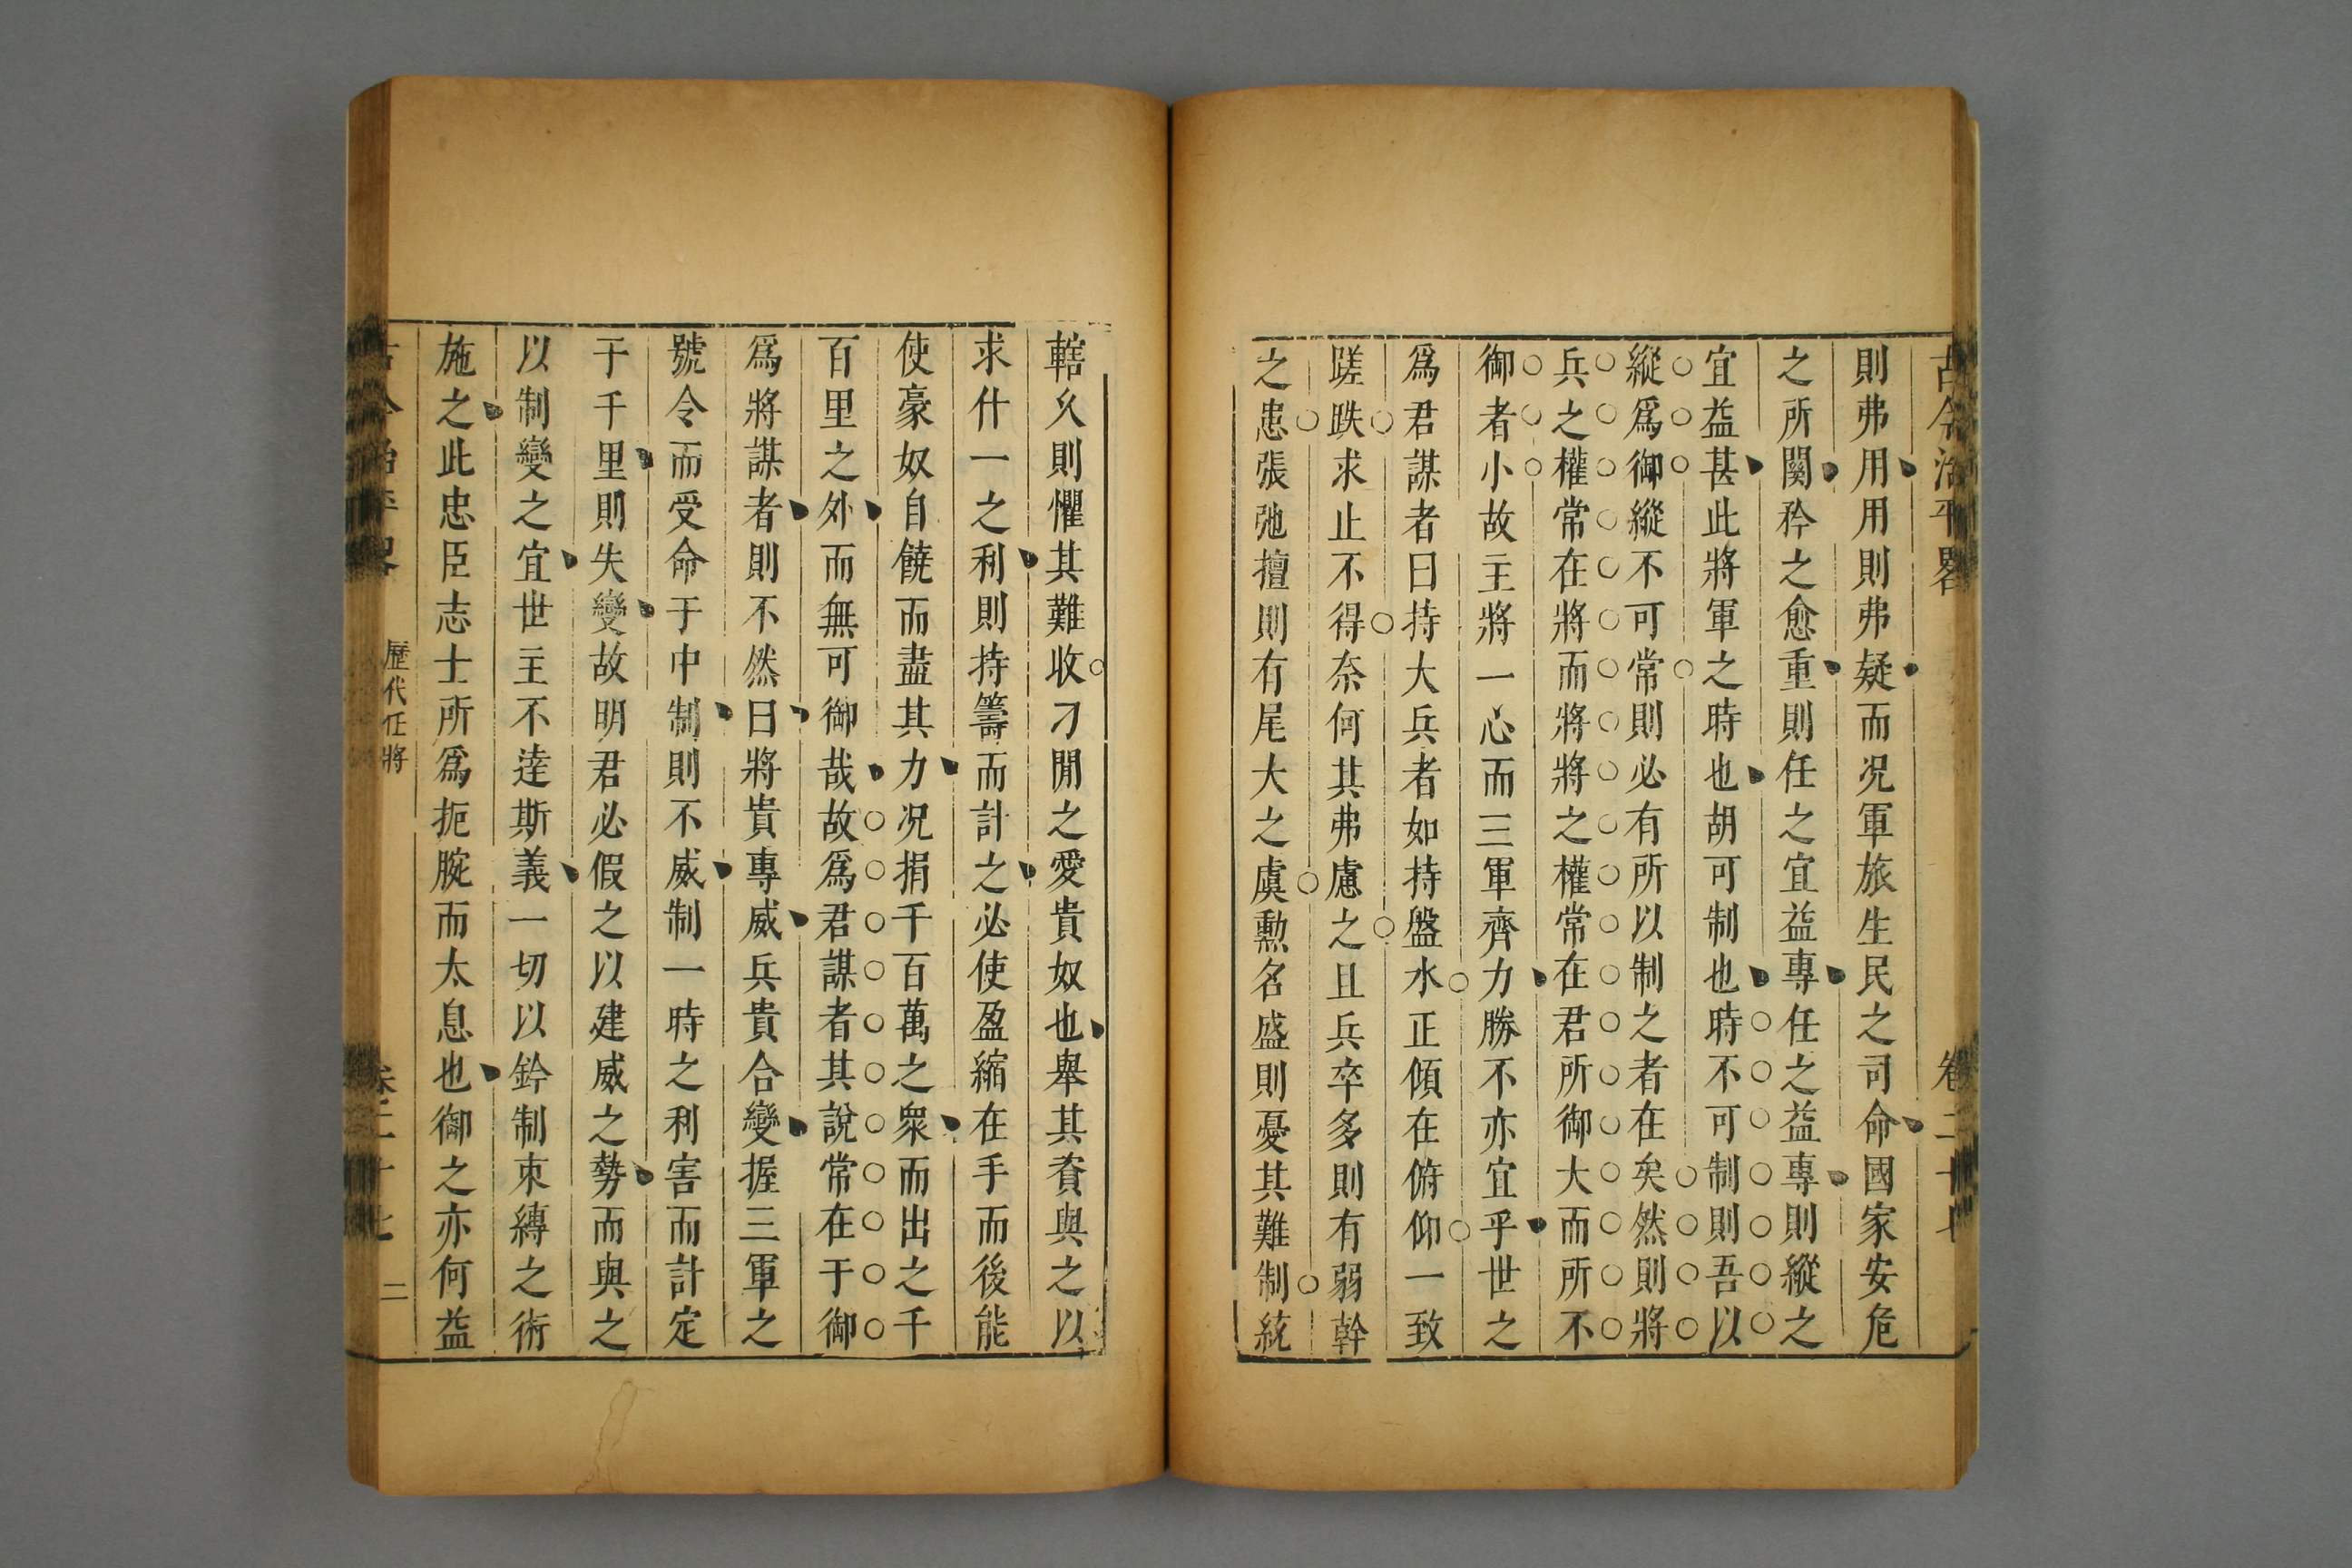 古今治平畧 卷二十七
則弗用用則弗疑而况軍旅生民之司命國家安危
之所關矜之愈重則任之宜益專任之益專則縱之
宜益甚此將軍之時也胡可制也時不可制則吾以
縱爲御縱不可常則必有所以制之者在矣然則將
兵之權常在將而將將之權常在君所御大而所不
御者小故主將一心而三軍齊力勝不亦宜乎世之
爲君謀者曰持大兵者如持盤水正傾在俯仰一致
蹉跌求止不得奈何其弗慮之且兵卒多則有弱幹
之患張弛擅則有尾大之虞勲名盛則憂其難制統
轄久則懼其難收刁閒之愛貴奴也舉其資與之以
求什一之利則持籌而計之必使盈縮在手而後能
使豪奴自饒而盡其力况捐千百萬之衆而出之千
百里之外而無可御哉故爲君謀者其說常在于御
爲將謀者則不然曰將貴專威兵貴合變握三軍之
號令而受命于中制則不威制一時之利害而計定
于千里則失變故明君必假之以建威之勢而與之
以制變之宜世主不逹斯義一切以鈐制束縛之術
施之此忠臣志士所爲扼腕而太息也御之亦何益
古今治平畧 歷代任將 卷二十七 二